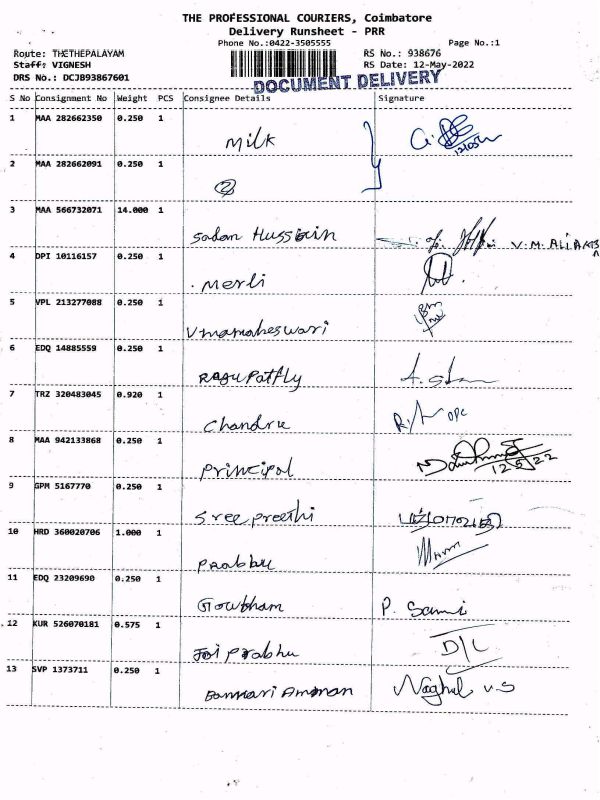 THE PROFESSIONAL COURIERS, Coimbatore
Delivery Runsheet - PRR
Phone No.:0422-3505555 Page No.:1
Route: THETHEPALAYAM RS No.: 938676
Staff: VIGNESH RS Date: 12-May-2022
DRS No.: DCJB93867601 DOCUMENT DELIVERY
S No Consignment No Weight PCS Consignee Details Signature
1 MAA 282662350 0.250 1
Milk
2 MAA 282662091 0.250 1
②
3 MAA 566732071 14.000 1
Sadam Hussain V.M.ALI
4 DPI 10116157 0.250 1
Merli
5 VPL 213277088 0.250 1
Vmamaheswari
6 EDQ 14885559 0.250 1
7 TRZ 320483045 0.920 1
Chandru
8 MAA 942133868 0.250 1
Principal 12/5/22
9 GPM 5167770 0.250 1
Sree preethi
10 HRD 360020706 1.000 1
Prabhu
11 EDQ 23209690 0.250 1
Gowtham P. Sami
12 KUR 526070181 0.575 1
Jai Prabhu D/C
13 SVP 1373711 0.250 1
Bannari Amman Naghul V.S